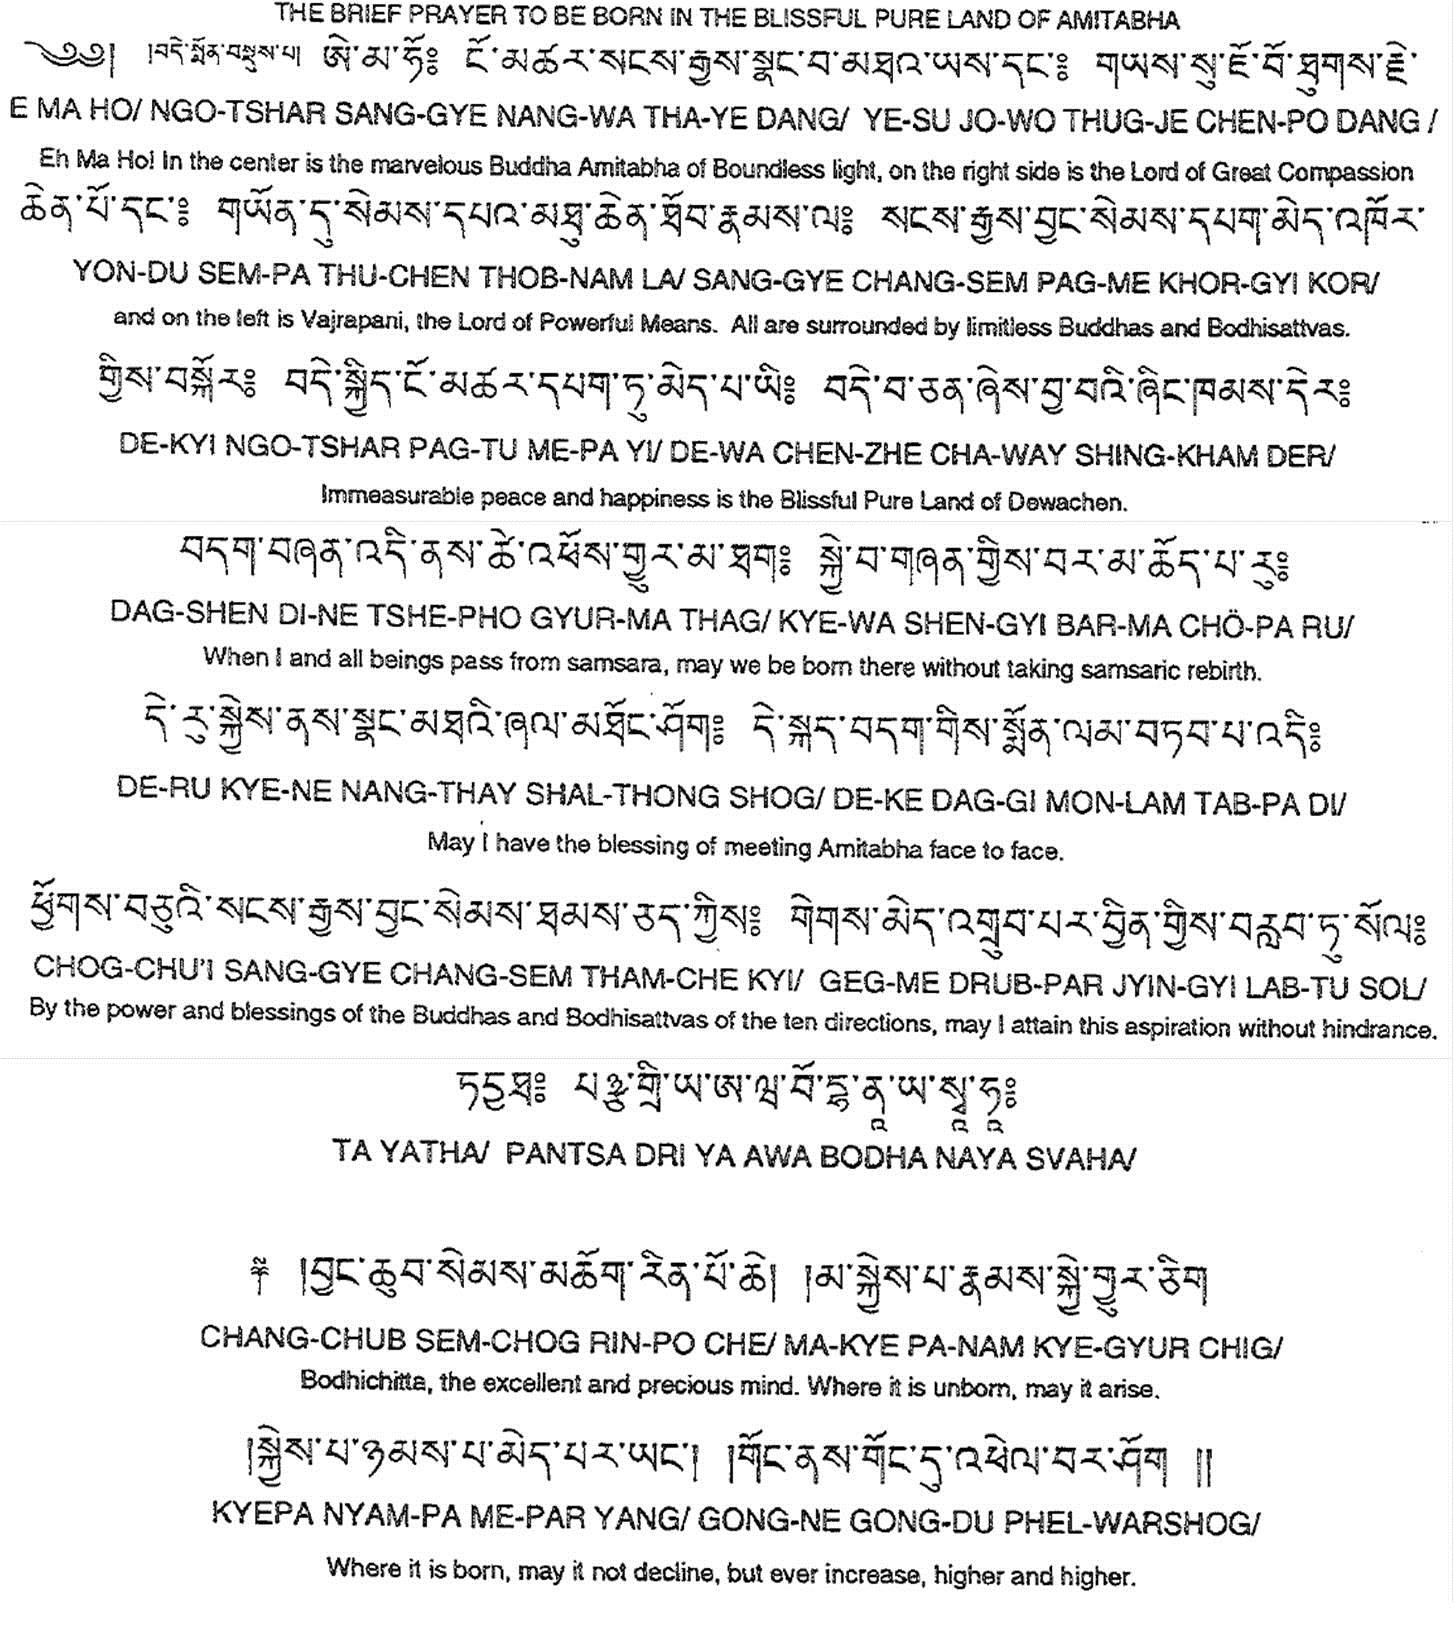 THE BRIEF PRAYER TO BE BORN IN THE BLISSFUL PURE LAND OF AMITABHA
༄༅། །བདེ་སྨོན་བསྡུས་པ། ཨེ་མ་ཧོཿ ངོ་མཚར་སངས་རྒྱས་སྣང་བ་མཐའ་ཡས་དང་ཿ གཡས་སུ་ཇོ་བོ་ཐུགས་རྗེ་
E MA HO/ NGO-TSHAR SANG-GYE NANG-WA THA-YE DANG/ YE-SU JO-WO THUG-JE CHEN-PO DANG /
Eh Ma Ho! In the center is the marvelous Buddha Amitabha of Boundless light, on the right side is the Lord of Great Compassion
ཆེན་པོ་དང་ཿ གཡོན་དུ་སེམས་དཔའ་མཐུ་ཆེན་ཐོབ་རྣམས་ལཿ སངས་རྒྱས་བྱང་སེམས་དཔག་མེད་འཁོར་
YON-DU SEM-PA THU-CHEN THOB-NAM LA/ SANG-GYE CHANG-SEM PAG-ME KHOR-GYI KOR/
and on the left is Vajrapani, the Lord of Powerful Means. All are surrounded by limitless Buddhas and Bodhisattvas.
གྱིས་བསྐོརཿ བདེ་སྐྱིད་ངོ་མཚར་དཔག་ཏུ་མེད་པ་ཡིཿ བདེ་བ་ཅན་ཞེས་བྱ་བའི་ཞིང་ཁམས་དེརཿ
DE-KYI NGO-TSHAR PAG-TU ME-PA YI/ DE-WA CHEN-ZHE CHA-WAY SHING-KHAM DER/
Immeasurable peace and happiness is the Blissful Pure Land of Dewachen.
བདག་བཞན་འདི་ནས་ཚེ་འཕོས་གྱུར་མ་ཐགཿ སྐྱེ་བ་གཞན་གྱིས་བར་མ་ཆོད་པ་རུཿ
DAG-SHEN DI-NE TSHE-PHO GYUR-MA THAG/ KYE-WA SHEN-GYI BAR-MA CHÖ-PA RU/
When I and all beings pass from samsara, may we be born there without taking samsaric rebirth.
དེ་རུ་སྐྱེས་ནས་སྣང་མཐའི་ཞལ་མཐོང་ཤོགཿ དེ་སྐད་བདག་གིས་སྨོན་ལམ་བཏབ་པ་འདིཿ
DE-RU KYE-NE NANG-THAY SHAL-THONG SHOG/ DE-KE DAG-GI MON-LAM TAB-PA DI/
May I have the blessing of meeting Amitabha face to face.
ཕྱོགས་བཅུའི་སངས་རྒྱས་བྱང་སེམས་ཐམས་ཅད་ཀྱིསཿ གེགས་མེད་འགྲུབ་པར་བྱིན་གྱིས་བརླབ་ཏུ་སོལཿ
CHOG-CHU'I SANG-GYE CHANG-SEM THAM-CHE KYI/ GEG-ME DRUB-PAR JYIN-GYI LAB-TU SOL/
By the power and blessings of the Buddhas and Bodhisattvas of the ten directions, may I attain this aspiration without hindrance.
ཏདྱཐཿ པཉྩ་གྲི་ཡ་ཨ་ཝ་བོ་དྡྷ་ནཱ་ཡ་སྭཱ་ཧཱཿ
TA YATHA/ PANTSA DRI YA AWA BODHA NAYA SVAHA/
༈ །བྱང་ཆུབ་སེམས་མཆོག་རིན་པོ་ཆེ། །མ་སྐྱེས་པ་རྣམས་སྐྱེ་གྱུར་ཅིག
CHANG-CHUB SEM-CHOG RIN-PO CHE/ MA-KYE PA-NAM KYE-GYUR CHIG/
Bodhichitta, the excellent and precious mind. Where it is unborn, may it arise.
།སྐྱེས་པ་ཉམས་པ་མེད་པར་ཡང་། །གོང་ནས་གོང་དུ་འཕེལ་བར་ཤོག །།
KYEPA NYAM-PA ME-PAR YANG/ GONG-NE GONG-DU PHEL-WARSHOG/
Where it is born, may it not decline, but ever increase, higher and higher.